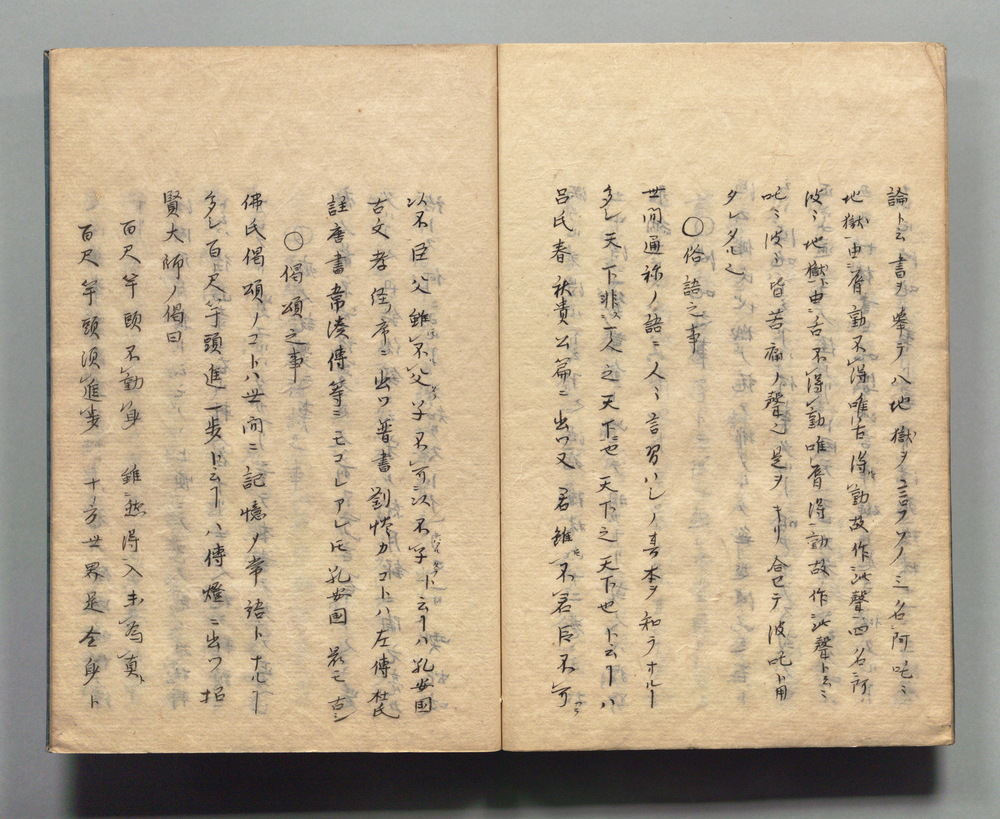 論ト云書ヲ挙テ八地獄ヲ言フソノ三名阿吒〻
地獄由脣動不得唯舌得動故作此聲四名阿
波〻地獄由舌不得動唯脣得動故作此聲ト云〻
吒〻波〻皆苦痛ノ聲也是ヲキリ合セテ波吒ト用
タレタル也
〇俗語之事
世間通称ノ語ニ人〻言習ハシノ本ヲ知ラナルー
多シ天下非一人之天下也天下之天下也ト云ヿハ
呂氏春秋貴公篇ニ出ツ又君雖不君臣不可
以不臣父雖不父子不可以不子ト云ヿハ孔安国
古文孝経ノ序ニ出ツ晋書劉惔カコトハ左傳杜氏
註唐書韋湊傳等ニモコレアレ氏孔安国最モ古シ
〇偈頌之事
佛氏偈頌ノコトハ世间ニ記憶ノ常語トナルヿ
多シ百尺竿頭進一歩ト云ヿハ傳燈ニ出ツ招
賢大師ノ偈曰
百尺竿頭不動身 雖然得入未為真
百尺竿頭須進歩 十方世界是全身ト